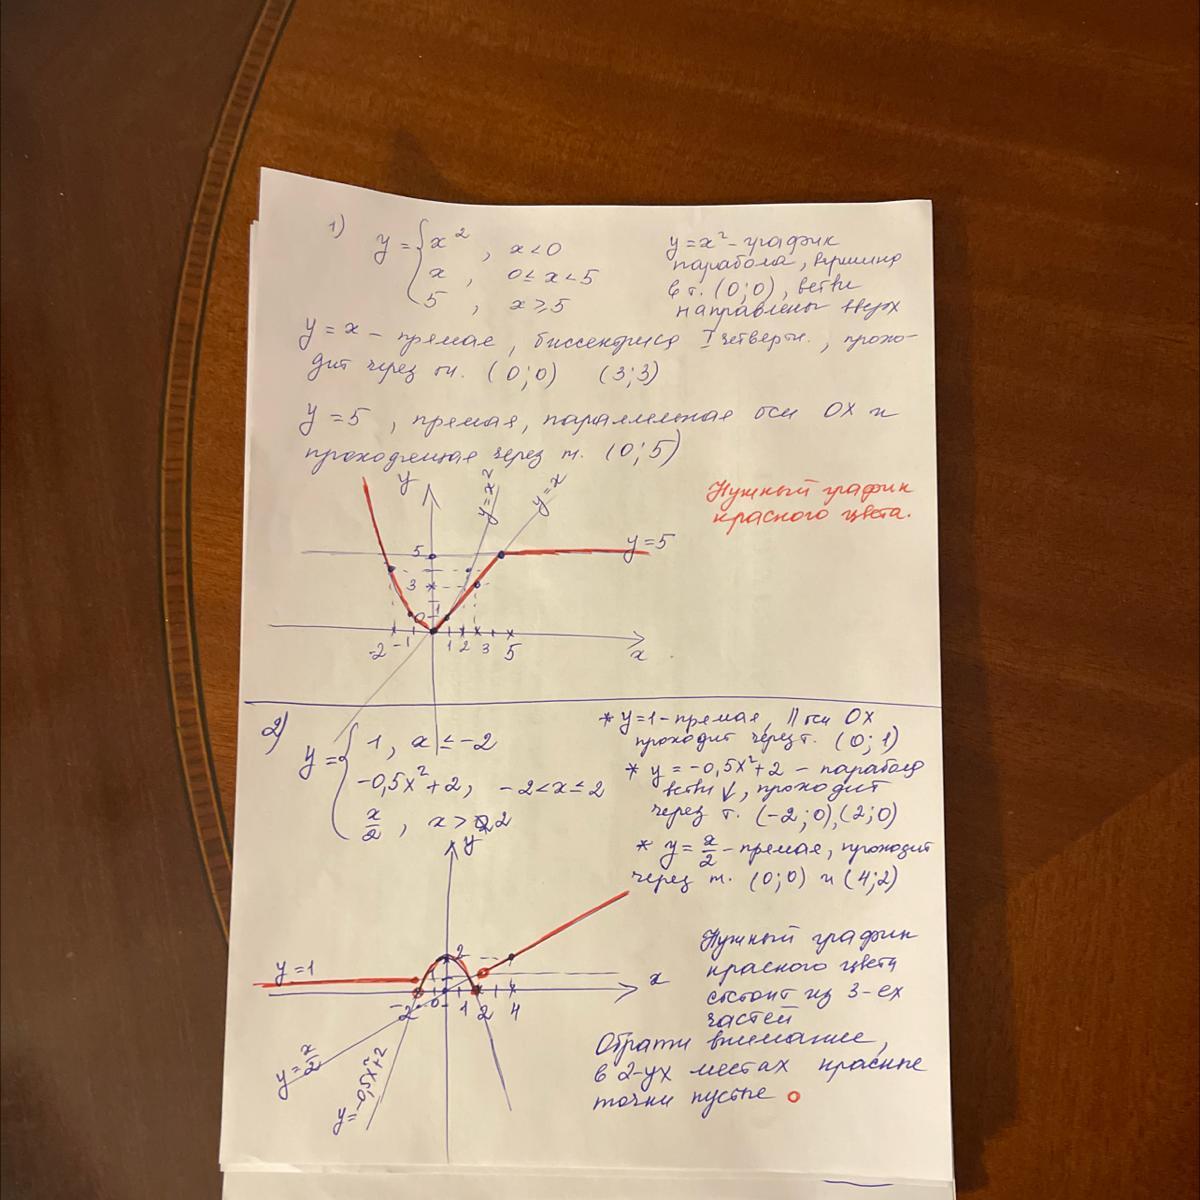 1)
y = { x², x<0
x, 0≤x<5
5, x≥5
y=x² - график
парабола, вершина
в т. (0;0), ветви
направлены вверх
y = x – прямая, биссектриса I четверти, прохо-
дит через тт. (0;0) (3;3)
y = 5, прямая, параллельная оси OX и
проходящая через т. (0;5)
Нужный график
красного цвета.
y
y=x²
y=x
5
y=5
3
1
0
-2 -1 1 2 3 5
x
2)
y = { 1, x ≤ -2
-0,5x²+2, -2<x≤2
x/2, x>2
* y=1 - прямая, || оси OX
проходит через т. (0;1)
* y = -0,5x²+2 – парабола
ветви ↓, проходит
через т. (-2;0),(2;0)
* y = x/2 - прямая, проходит
через т. (0;0) и (4;2)
y
y=1
2
1
x
-2 0 1 2 4
y=x/2
y=-0,5x²+2
Нужный график
красного цвета
состоит из 3-ех
частей
Обрати внимание,
в 2-ух местах красные
точки пустые